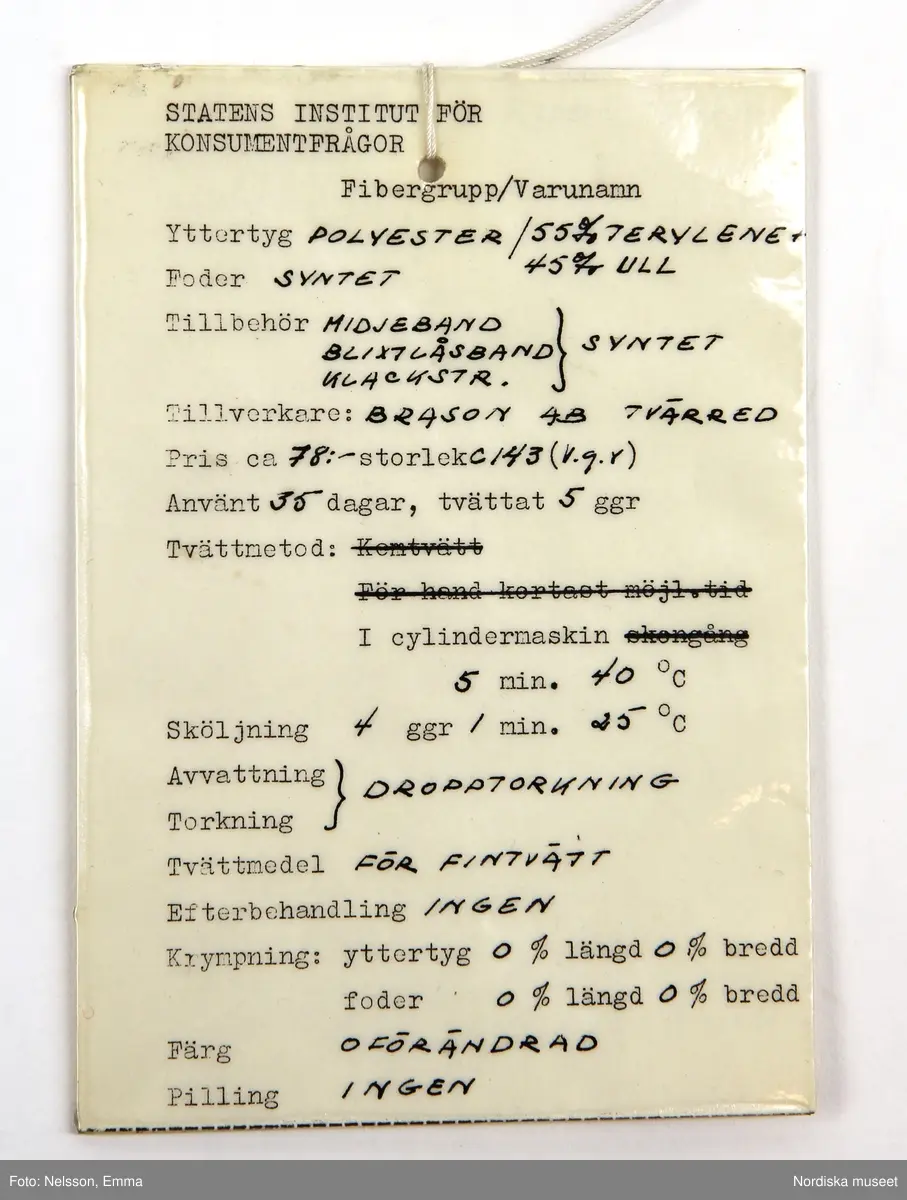 STATENS INSTITUT FÖR
KONSUMENTFRÅGOR
Fibergrupp/Varunamn
Yttertyg POLYESTER / 55% TERYLENE +
45% ULL
Foder SYNTET
Tillbehör MIDJEBAND
BLIXTLÅSBAND } SYNTET
KLACKSTR.
Tillverkare: BRASON AB TVÄRRED
Pris ca 78:- storlek C 143 (V.g.v)
Använt 35 dagar, tvättat 5 ggr
Tvättmetod: Kemtvätt
För hand kortast möjl.tid
I cylindermaskin skongång
5 min. 40 °C
Sköljning 4 ggr 1 min. 25 °C
Avvattning } DROPPTORKNING
Torkning
Tvättmedel FÖR FINTVÄTT
Efterbehandling INGEN
Krympning: yttertyg 0 % längd 0 % bredd
foder 0 % längd 0 % bredd
Färg OFÖRÄNDRAD
Pilling INGEN
Foto: Nelsson, Emma
Nordiska museet